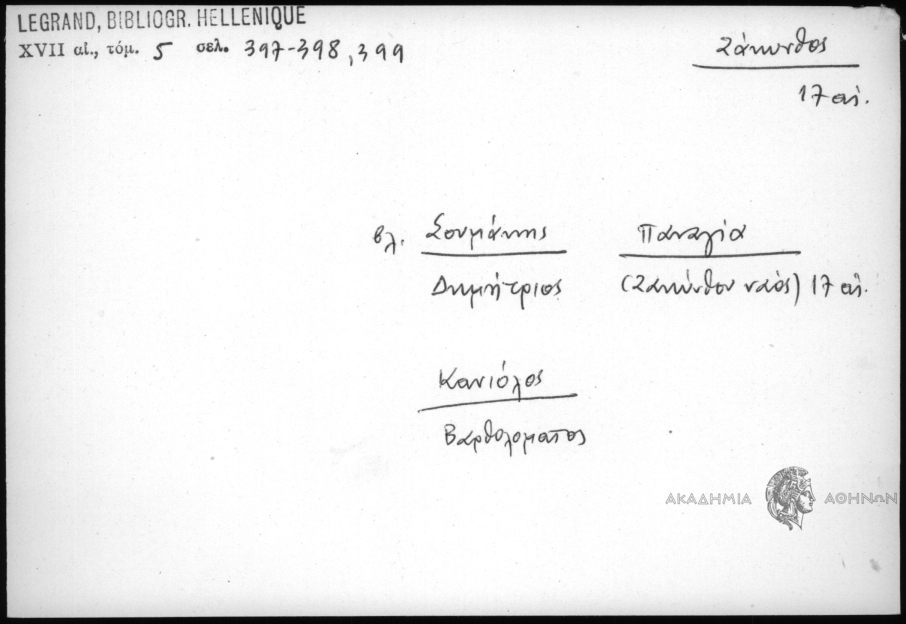 LEGRAND, BIBLIOGR. HELLENIQUE
XVII αἰ., τόμ. 5 σελ. 397-398, 399
Ζάκυνθος
17 αἰ.
βλ. Σουμάκης Παναγία
Δημήτριος (Ζακύνθου ναός) 17 αἰ.
Κανιόλος
Βαρθολομαῖος
ΑΚΑΔΗΜΙΑ ΑΘΗΝΩΝ